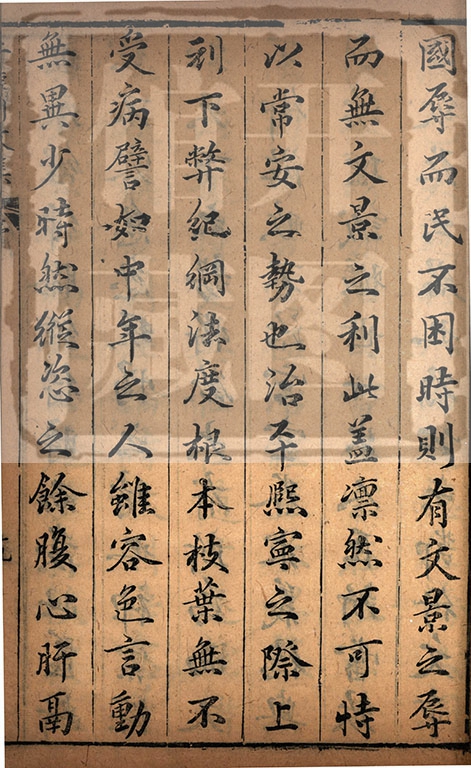 國辱而民不困時則有文景之辱
而無文景之利此盖凛然不可恃
以常安之勢也治平熈寧之際上
利下弊紀綱法度根本枝葉無不
受病譬如中年之人雖容色言動
無異少時然縱恣之餘腹心肝鬲